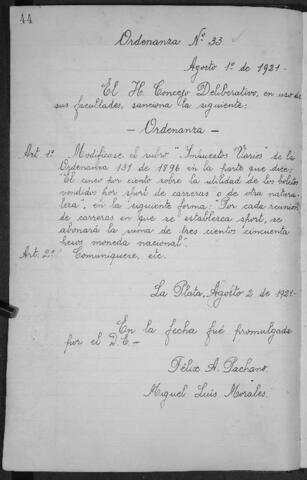 44
Ordenanza Nº 33
Agosto 1º de 1921-
El H. Concejo Deliberativo, en uso de
sus facultades, sanciona la siguiente:
- Ordenanza -
Art. 1º Modifícase el rubro "Impuestos Varios" de la
Ordenanza 131 de 1896 en la parte que dice:
"El cinco por ciento sobre la utilidad de los boletos
vendidos por sport de carreras o de otra natura-
leza", en la siguiente forma: "Por cada reunión
de carreras en que se establezca sport, se
abonará la suma de tres cientos cincuenta
pesos moneda nacional".
Art. 2º Comuníquese, etc.
La Plata, Agosto 2 de 1921-
En la fecha fué promulgada
por el D.E.-
Félix A. Pachano
Miguel Luis Morales.